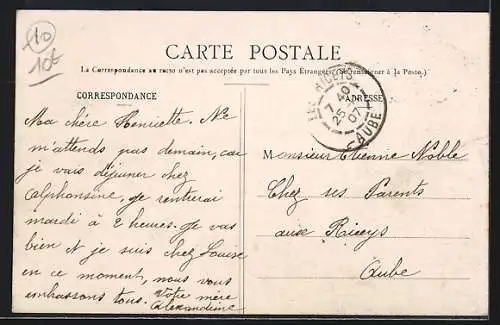 10
10f
CARTE POSTALE
La Correspondance au recto n'est pas acceptée par tous les Pays Étrangers (Se renseigner à la Poste.)
CORRESPONDANCE
Ma chére Henriette. Ne
m'attends pas demain, car
je vais déjeuner chez
Alphonsine, je rentirai
mardi à 2 heures. Je vas
bien et je suis chez Louise
en ce moment, nous vous
embrassons tous. Votre mère
Alexandrine
LES RICEYS
7 40
25
07
AUBE
ADRESSE
Monsieur Etienne Noble
Chez ses Parents
aux Riceys
Aube